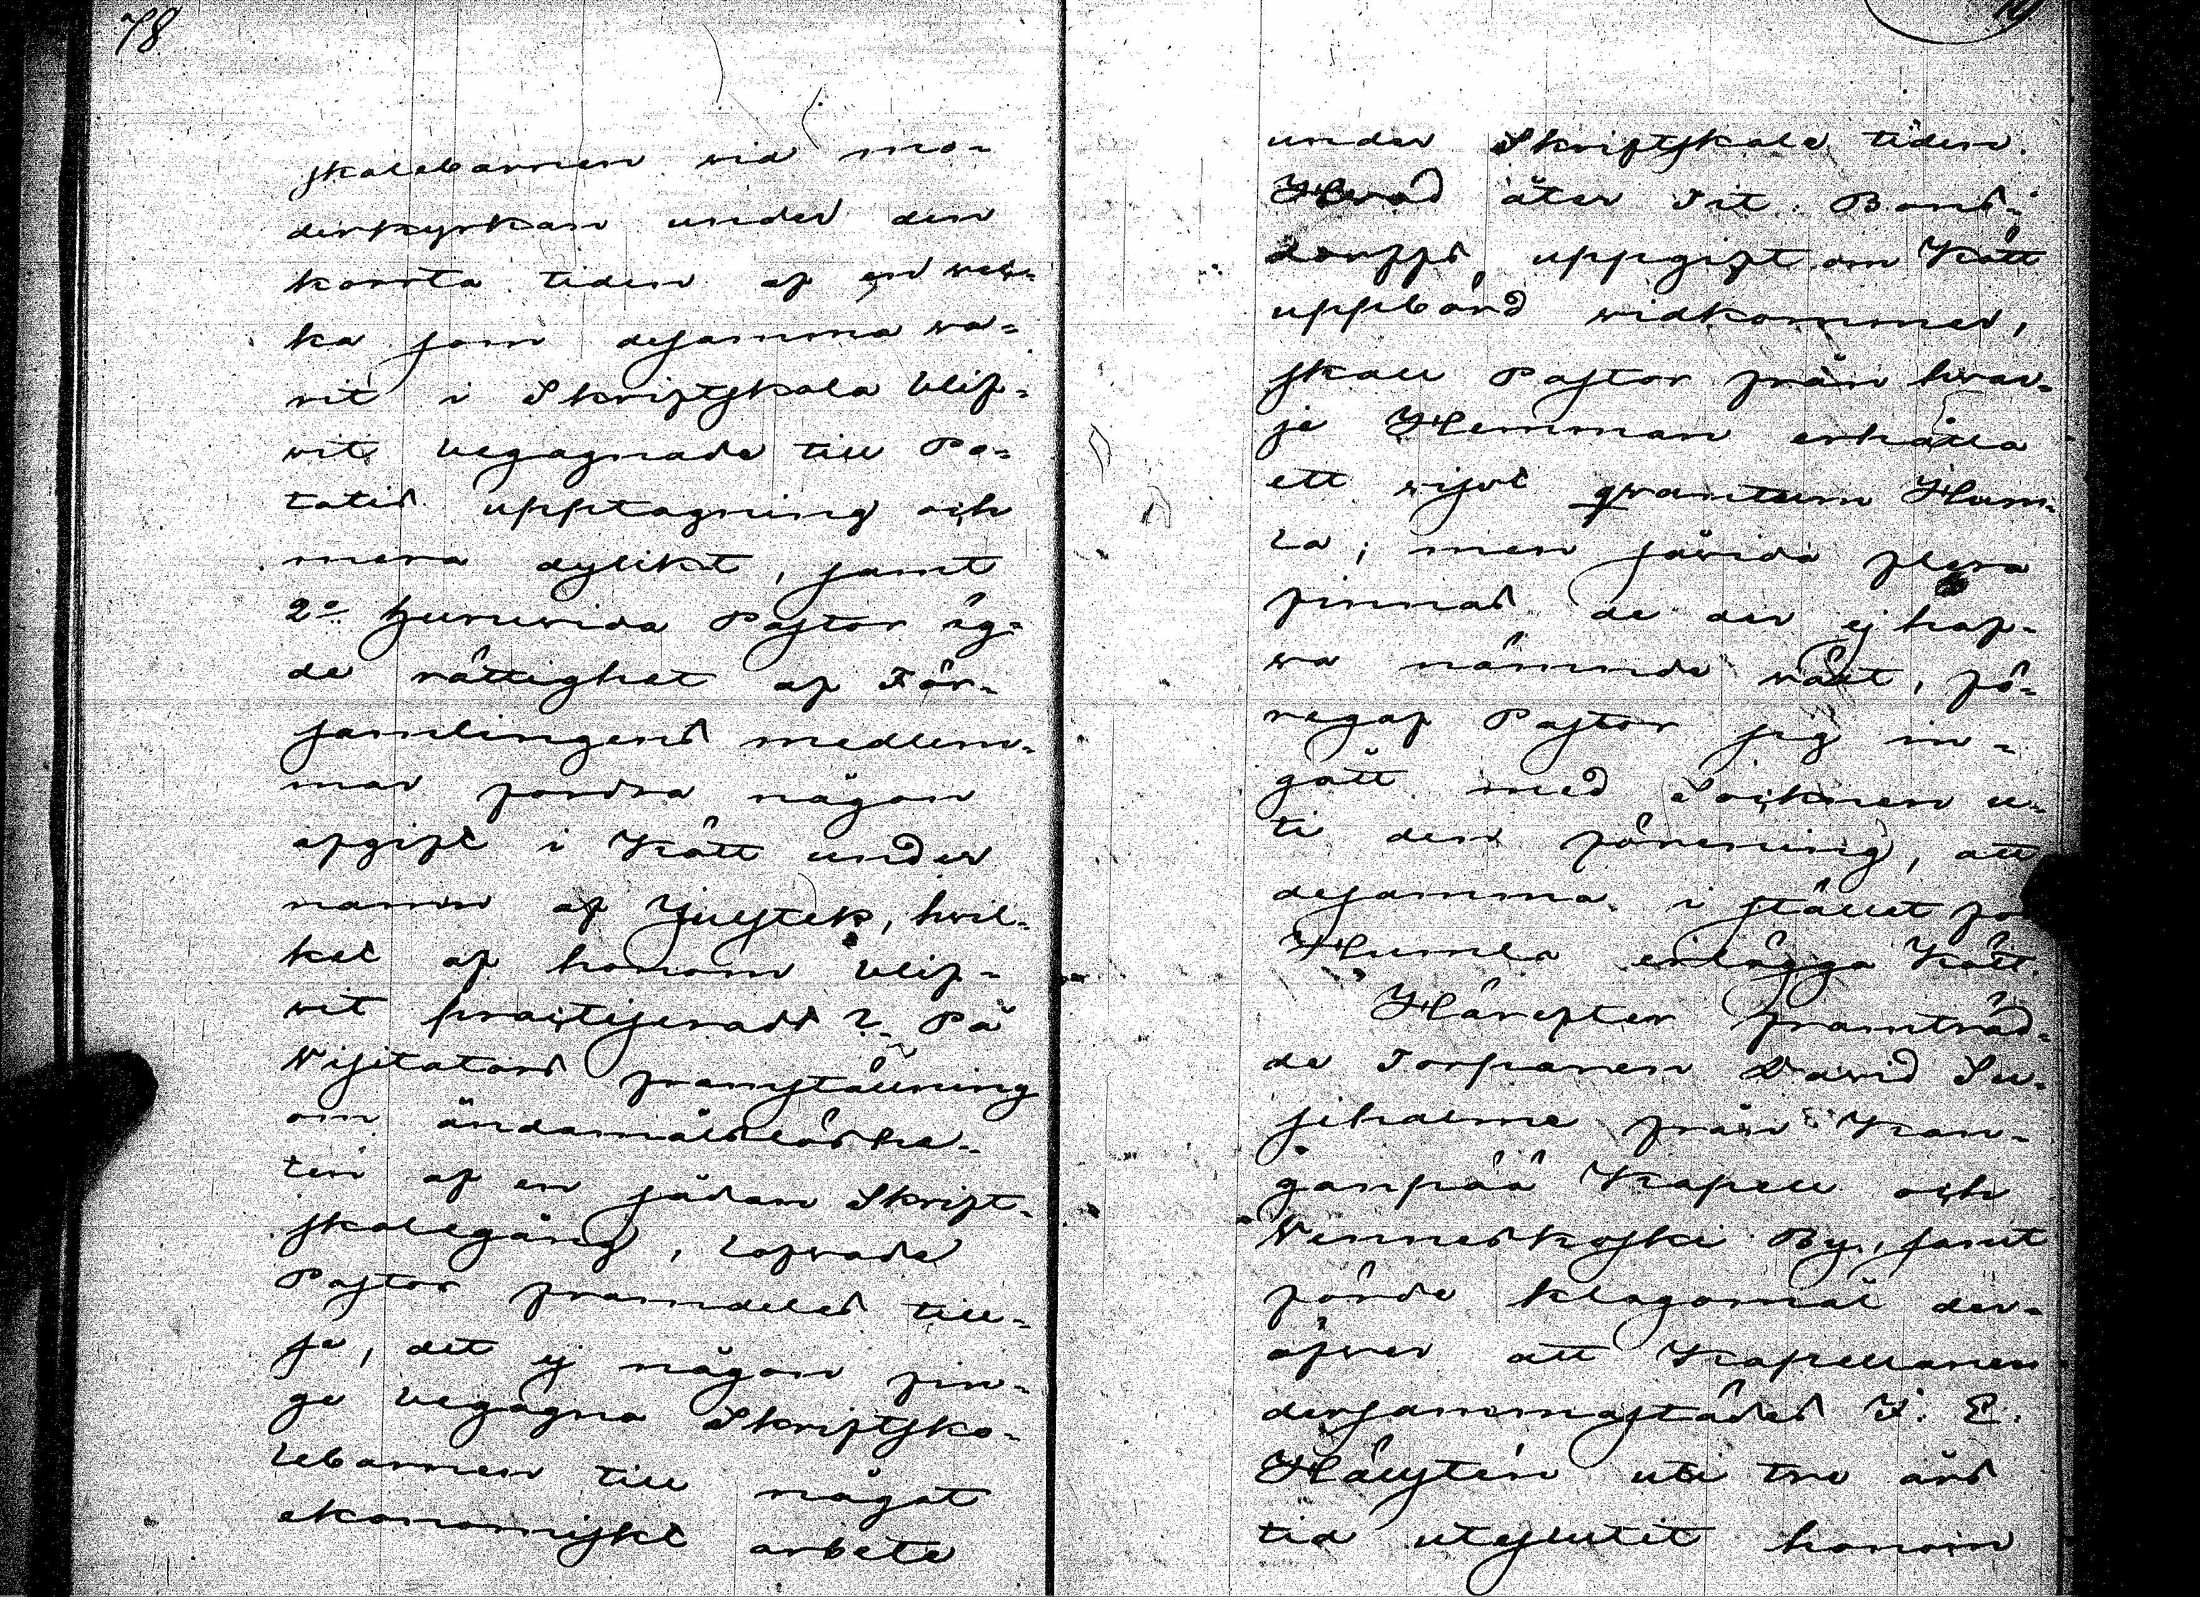 78
skolebarnen vid mo-
derkyrkan under den
korrta tiden af en vec-
ka som desamma va-
rit i Skriftskola blif-
vit begagnade till Po-
tatis upptagning och
mera dylikt, samt
2o huruvida Pastor äg-
de rättighet af För-
samlingens medlem-
mar fordra någon
afgift i Kött under
namn af Julstek, hvil-
ket af honom blif-
vit practiseradt? På
Visitators framställning
om ändamålslöshe-
ten af en sådan Skrift-
skolegång, lofvade
Pastor framdeles till-
se, det ej någon fin-
ge begagna Skriftsko-
lebarnen till något
ekonomiskt arbete
under Skriftskole tiden.
Hvad åter Tit. Bons-
dorffs uppgift om Kött
uppbörd vidkommer,
skall Pastor från hvar-
je Hemman erhålla
ett visst qvantum Hum-
la; men såvida flera
finnas de der ej haf-
va nämnde växt, fö-
regaf Pastor sig in-
gått med Socknen u-
ti den förening, att
desamma i stället för
Humla erlägga Kött.
Härefter framträd-
de Torparen David Su-
siholme från Kan-
ganpää Kapell och
Venneskoski By, samt
förde klagomål der-
öfver att Kapellanen
dersammastädes J. E.
Hällsten uti tre års
tid uteslutit honom